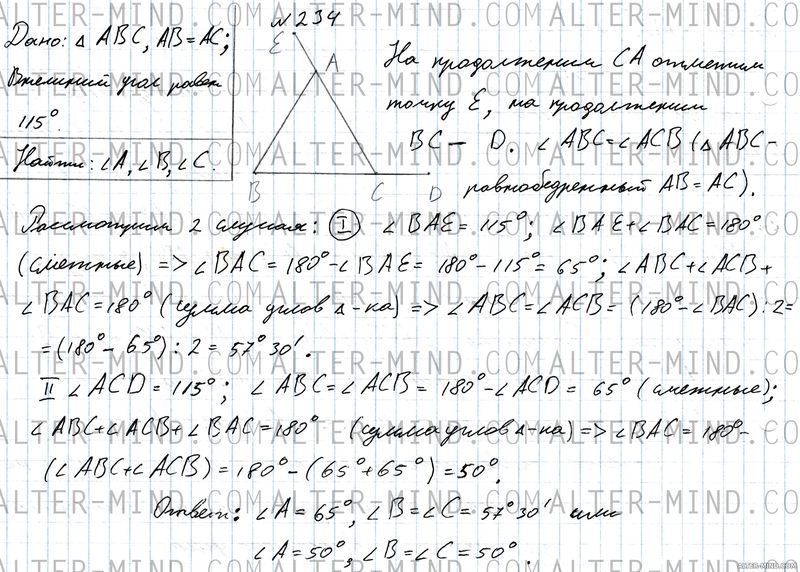 № 234
Дано: △ ABC, AB = AC;
Внешний угол равен
115°.
Найти: ∠A, ∠B, ∠C.
E
A
B
C
D
На продолжении CA отметим
точку E, на продолжении
BC — D. ∠ABC = ∠ACB (△ ABC -
равнобедренный AB = AC).
Рассмотрим 2 случая: I ∠BAE = 115°; ∠BAE + ∠BAC = 180°
(смежные) => ∠BAC = 180° - ∠BAE = 180° - 115° = 65°; ∠ABC + ∠ACB +
∠BAC = 180° (сумма углов △-ка) => ∠ABC = ∠ACB = (180° - ∠BAC) : 2 =
= (180° - 65°) : 2 = 57° 30'.
II ∠ACD = 115°; ∠ABC = ∠ACB = 180° - ∠ACD = 65° (смежные);
∠ABC + ∠ACB + ∠BAC = 180° (сумма углов △-ка) => ∠BAC = 180° -
(∠ABC + ∠ACB) = 180° - (65° + 65°) = 50°.
Ответ: ∠A = 65°, ∠B = ∠C = 57° 30' или
∠A = 50°, ∠B = ∠C = 50°.
ALTER-MIND.COM